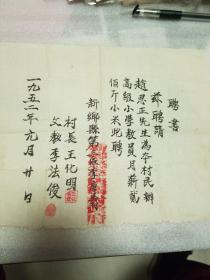 聘書
兹聘請
趙思正先生為本村民辦
高級小學教員月薪貳
佰斤小米此聘
新鄉縣第
村長王化明
文教李法俊
一九五二年元月廿日